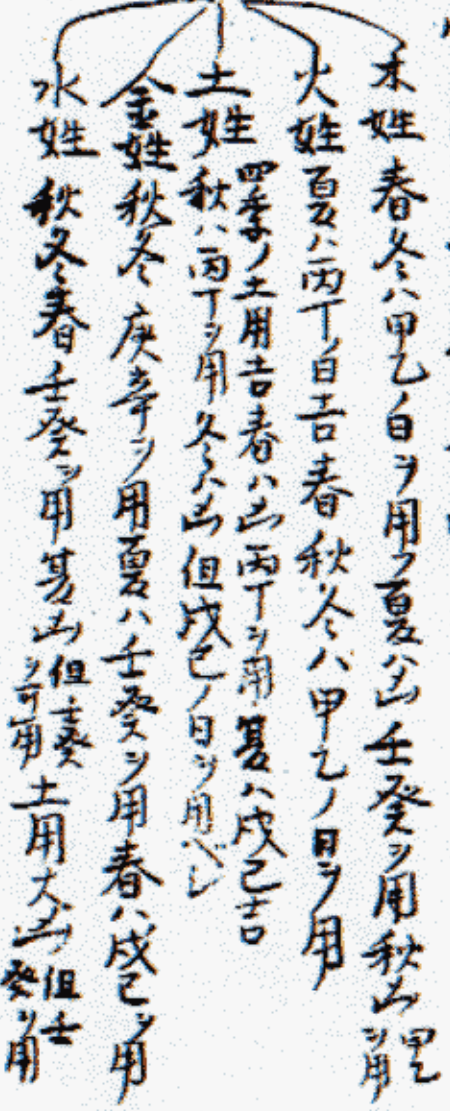 木姓 春冬ハ甲乙ノ日ヲ用フ夏ハ凶壬癸ヲ用秋凶甲乙ヲ用
火姓 夏ハ丙丁ノ日吉春秋冬ハ甲乙ノ日ヲ用
土姓 四季ノ土用吉春ハ凶丙丁ヲ用夏ハ戊己吉
秋ハ丙丁ヲ用冬ハ凶但戊己ノ日ヲ用ベシ
金姓 秋冬庚辛ヲ用夏ハ壬癸ヲ用春ハ戊己ヲ用
水姓 秋冬春壬癸ヲ用夏凶但壬癸ヲ可用土用大凶但壬癸ヲ用